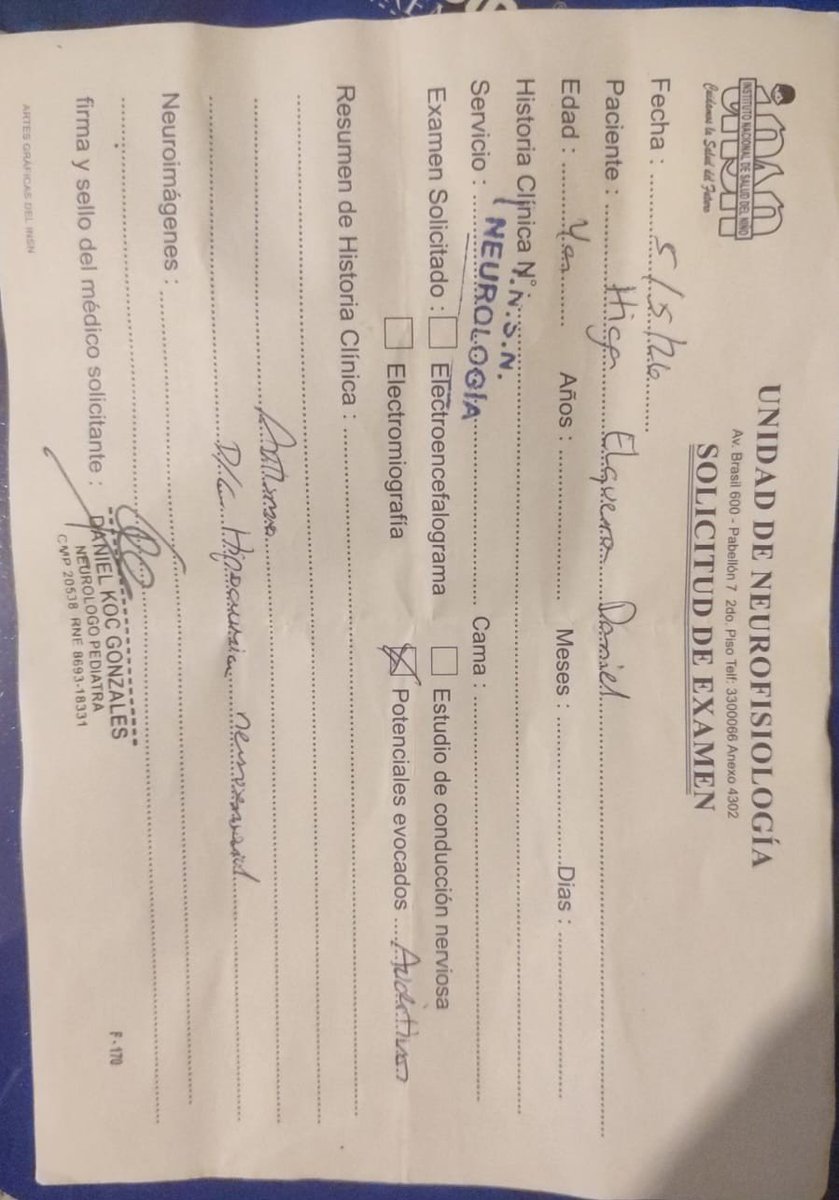 INSTITUTO NACIONAL DE SALUD DEL NIÑO
Cuidamos la Salud del Futuro
UNIDAD DE NEUROFISIOLOGÍA
Av. Brasil 600 - Pabellón 7 2do. Piso Telf: 3300066 Anexo 4302
SOLICITUD DE EXAMEN
Fecha : 5/5/26
Paciente : Higa Elguera Daniel
Edad : Años : Meses : Dias :
Historia Clínica N°:
I.N.S.N.
Servicio : NEUROLOGÍA Cama :
Examen Solicitado : Electroencefalograma Estudio de conducción nerviosa
Electromiografía Potenciales evocados Auditivos
Resumen de Historia Clínica :
Autismo
D/c Hipoacusia neurosensorial
Neuroimágenes :
firma y sello del médico solicitante :
DANIEL KOC GONZALES
NEUROLOGO PEDIATRA
CMP 20538 RNE 8693-18331
ARTES GRÁFICAS DEL INSN
F - 170